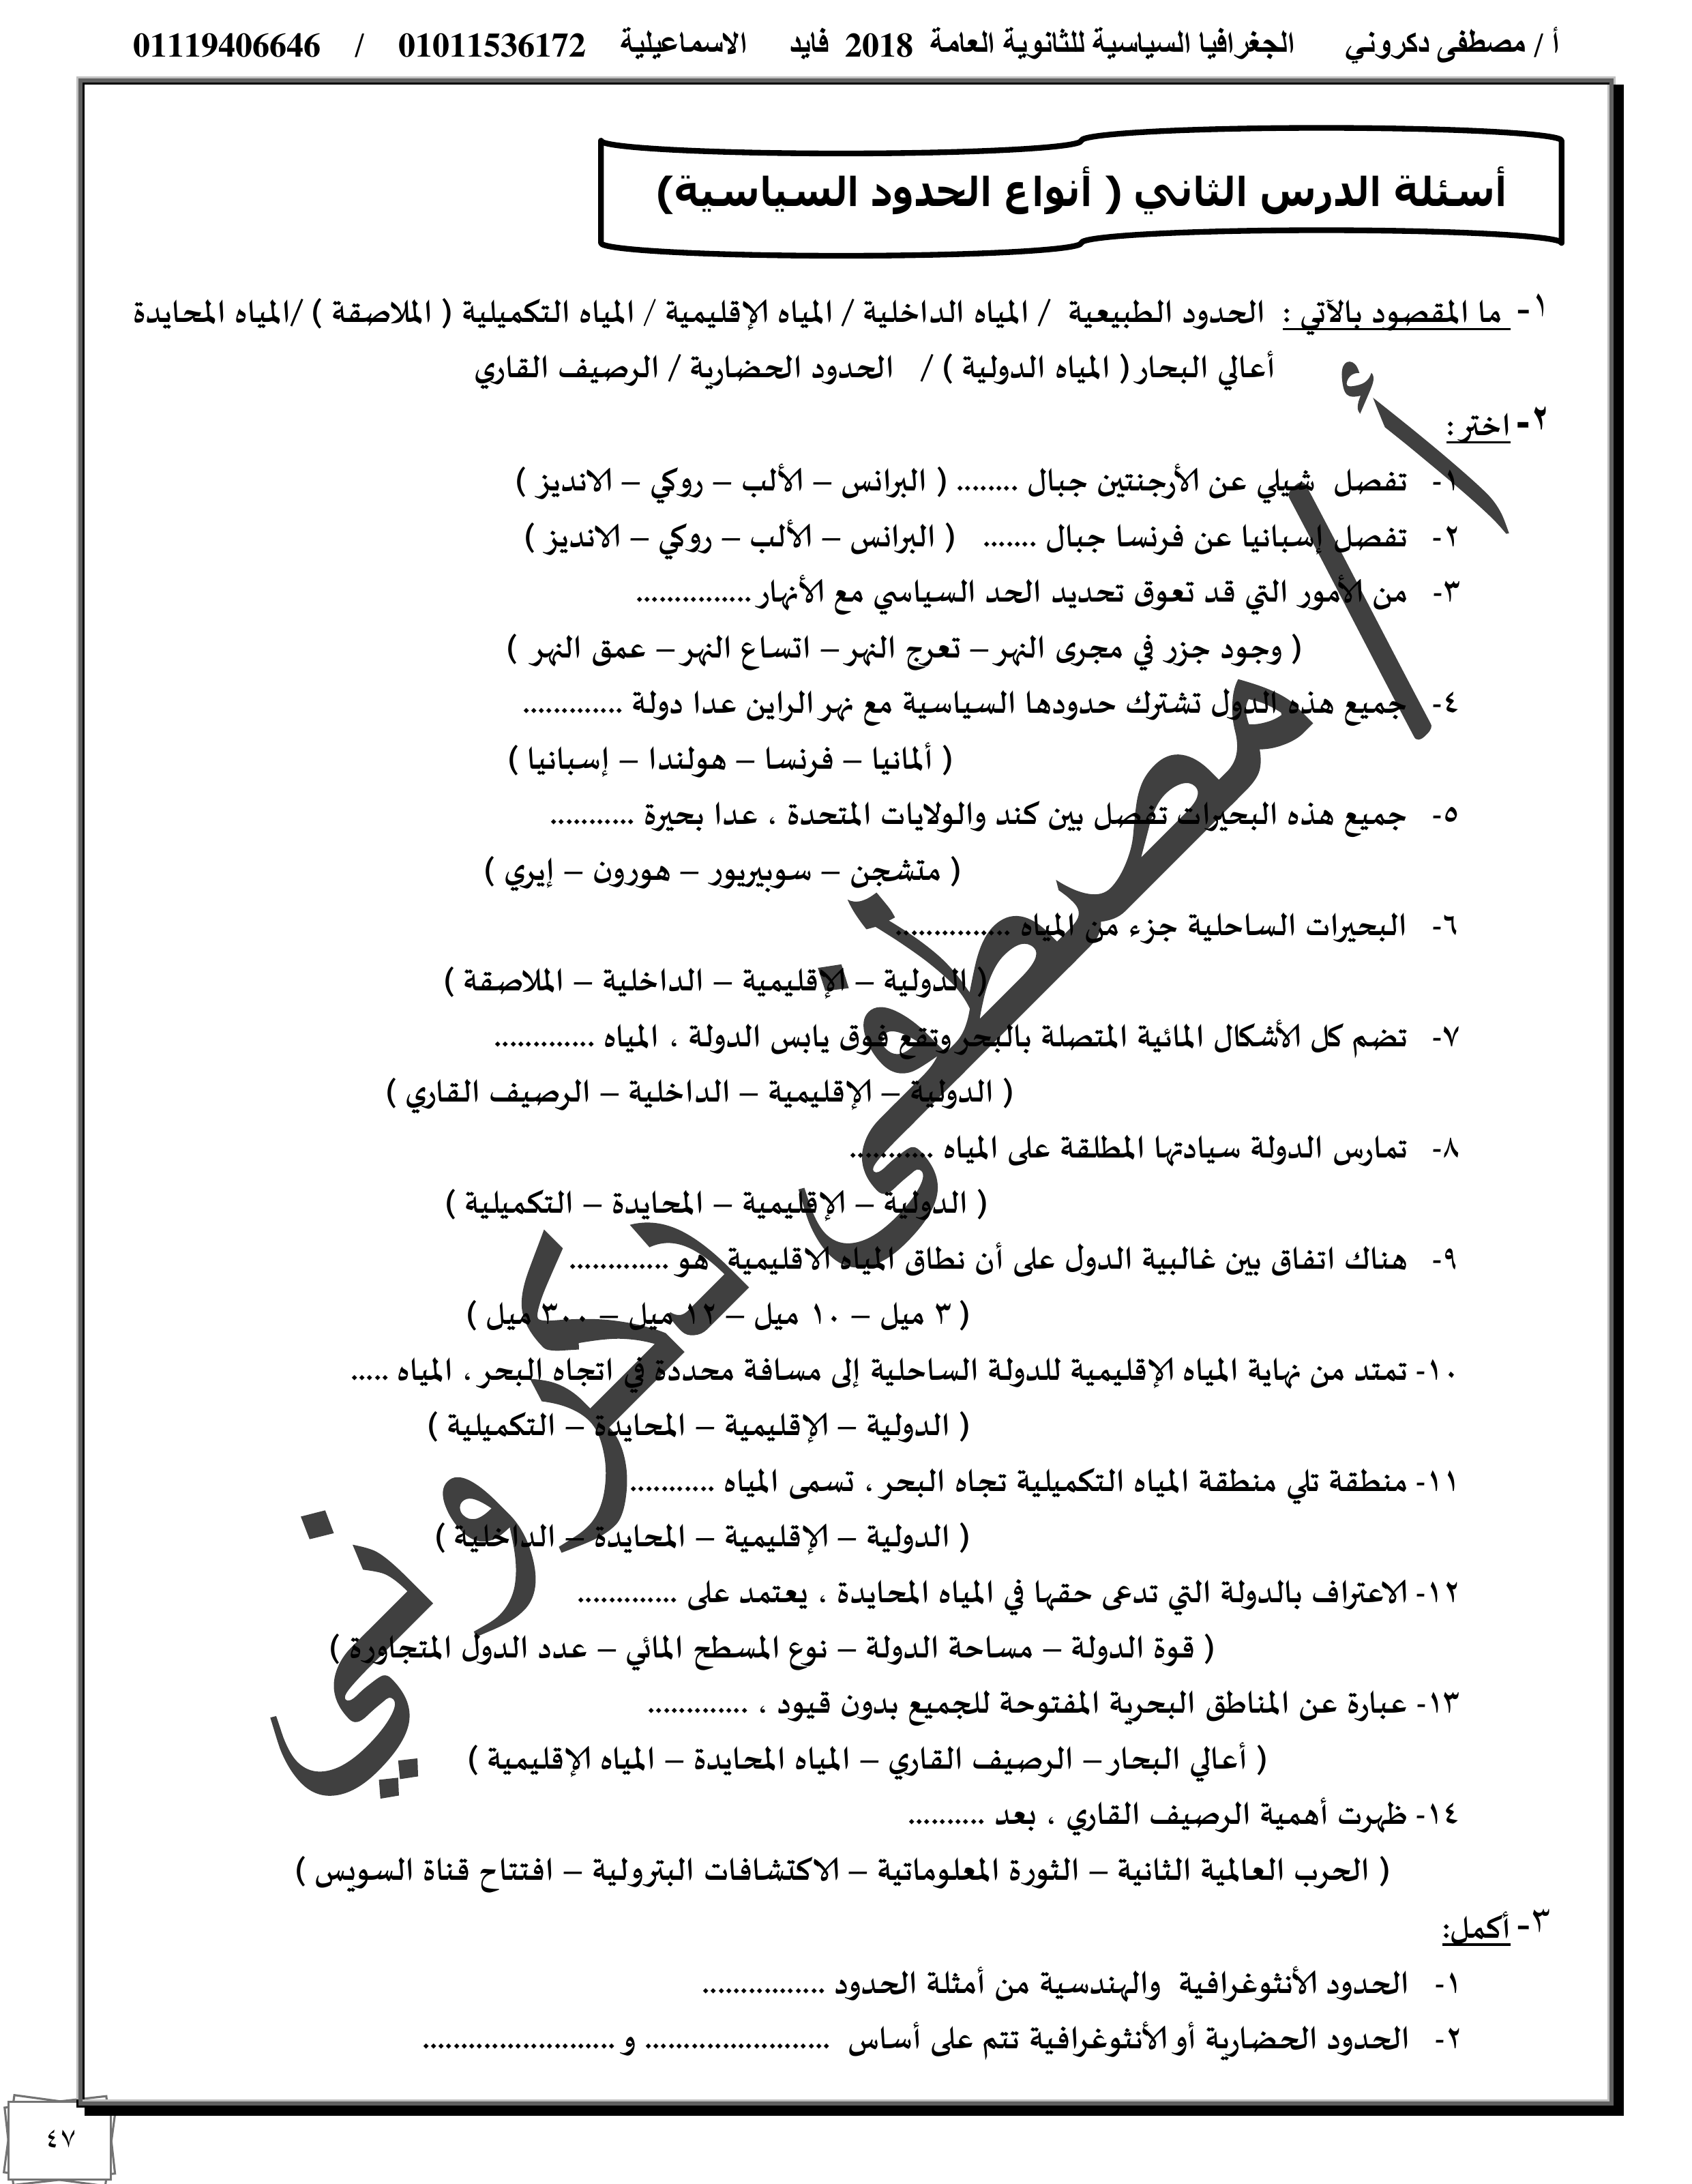 أ / مصطفى دكروني الجغرافيا السياسية للثانوية العامة 2018 فايد الاسماعيلية 01011536172 / 01119406646
أسئلة الدرس الثاني ( أنواع الحدود السياسية)
١- ما المقصود بالآتي : الحدود الطبيعية / المياه الداخلية / المياه الإقليمية / المياه التكميلية ( الملاصقة ) /المياه المحايدة
أعالي البحار ( المياه الدولية ) / الحدود الحضارية / الرصيف القاري
٢- اختر :
١- تفصل شيلي عن الأرجنتين جبال ........ ( البرانس – الألب – روكي – الانديز )
٢- تفصل إسبانيا عن فرنسا جبال ....... ( البرانس – الألب – روكي – الانديز )
٣- من الأمور التي قد تعوق تحديد الحد السياسي مع الأنهار ...............
( وجود جزر في مجرى النهر – تعرج النهر – اتساع النهر – عمق النهر )
٤- جميع هذه الدول تشترك حدودها السياسية مع نهر الراين عدا دولة .............
( ألمانيا – فرنسا – هولندا – إسبانيا )
٥- جميع هذه البحيرات تفصل بين كند والولايات المتحدة ، عدا بحيرة ...........
( متشجن – سوبيريور – هورون – إيري )
٦- البحيرات الساحلية جزء من المياه ...............
( الدولية – الإقليمية – الداخلية – الملاصقة )
٧- تضم كل الأشكال المائية المتصلة بالبحر وتقع فوق يابس الدولة ، المياه .............
( الدولية – الإقليمية – الداخلية – الرصيف القاري )
٨- تمارس الدولة سيادتها المطلقة على المياه ...........
( الدولية – الإقليمية – المحايدة – التكميلية )
٩- هناك اتفاق بين غالبية الدول على أن نطاق المياه الاقليمية هو .............
( ٣ ميل – ١٠ ميل – ١٢ ميل – ٣٠٠ ميل )
١٠- تمتد من نهاية المياه الإقليمية للدولة الساحلية إلى مسافة محددة في اتجاه البحر ، المياه .....
( الدولية – الإقليمية – المحايدة – التكميلية )
١١- منطقة تلي منطقة المياه التكميلية تجاه البحر ، تسمى المياه ...........
( الدولية – الإقليمية – المحايدة – الداخلية )
١٢- الاعتراف بالدولة التي تدعى حقها في المياه المحايدة ، يعتمد على .............
( قوة الدولة – مساحة الدولة – نوع المسطح المائي – عدد الدول المتجاورة )
١٣- عبارة عن المناطق البحرية المفتوحة للجميع بدون قيود ، .............
( أعالي البحار – الرصيف القاري – المياه المحايدة – المياه الإقليمية )
١٤- ظهرت أهمية الرصيف القاري ، بعد ..........
( الحرب العالمية الثانية – الثورة المعلوماتية – الاكتشافات البترولية – افتتاح قناة السويس )
٣- أكمل:
١- الحدود الأنثوغرافية والهندسية من أمثلة الحدود ................
٢- الحدود الحضارية أو الأنثوغرافية تتم على أساس ........................ و .........................
٤٧
أ / مصطفى دكروني